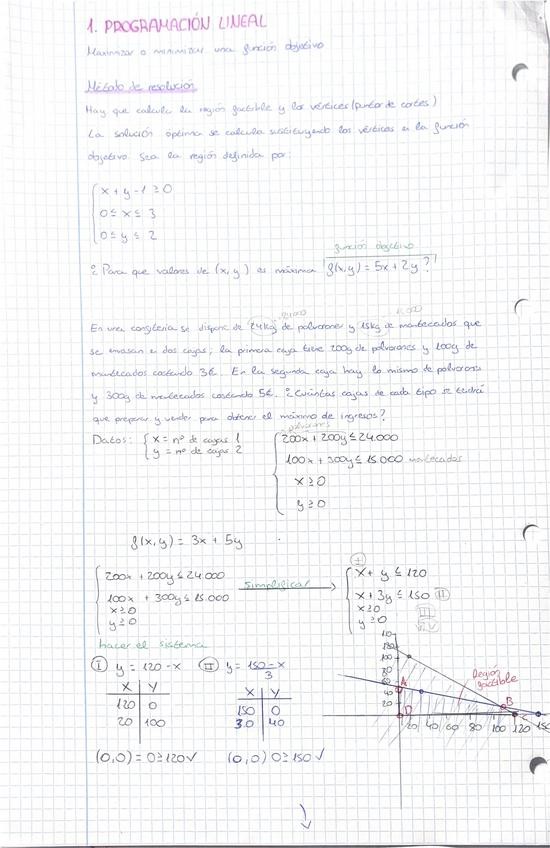 1. PROGRAMACIÓN LINEAL
Maximizar o minimizar una función objetivo
Método de resolución
Hay que calcular la región factible y los vértices (puntos de cortes)
La solución óptima se calcula sustituyendo los vértices en la función
objetivo. Sea la región definida por:
x + y - 1 ≥ 0
0 ≤ x ≤ 3
0 ≤ y ≤ 2
función objetivo
¿Para que valores de (x,y) es máxima f(x,y) = 5x + 2y?
En una confitería se dispone de 24kg de polvorones y 15kg de mantecados que
se envasan en dos cajas; la primera caja tiene 200g de polvorones y 100g de
mantecados costando 3€. En la segunda caja hay lo mismo de polvorones
y 300g de mantecados costando 5€. ¿Cuántas cajas de cada tipo se tendrá
que preparar y vender para obtener el máximo de ingresos?
polvorones
Datos: { x = nº de cajas 1
y = nº de cajas 2
200x + 200y ≤ 24.000
100x + 300y ≤ 15.000 mantecados
x ≥ 0
y ≥ 0
f(x,y) = 3x + 5y
200x + 200y ≤ 24.000
100x + 300y ≤ 15.000
x ≥ 0
y ≥ 0
Simplificar
x + y ≤ 120
x + 3y ≤ 150 II
x ≥ 0 III
y ≥ 0 IV
hacer el sistema
I y = 120 - x
X Y
120 0
20 100
II y = 150 - x / 3
X Y
150 0
30 40
(0,0) = 0 ≥ 120 ✓ (0,0) 0 ≥ 150 ✓
Región factible
A
B
C
D
100
80
60
40
20
20 40 60 80 100 120 150